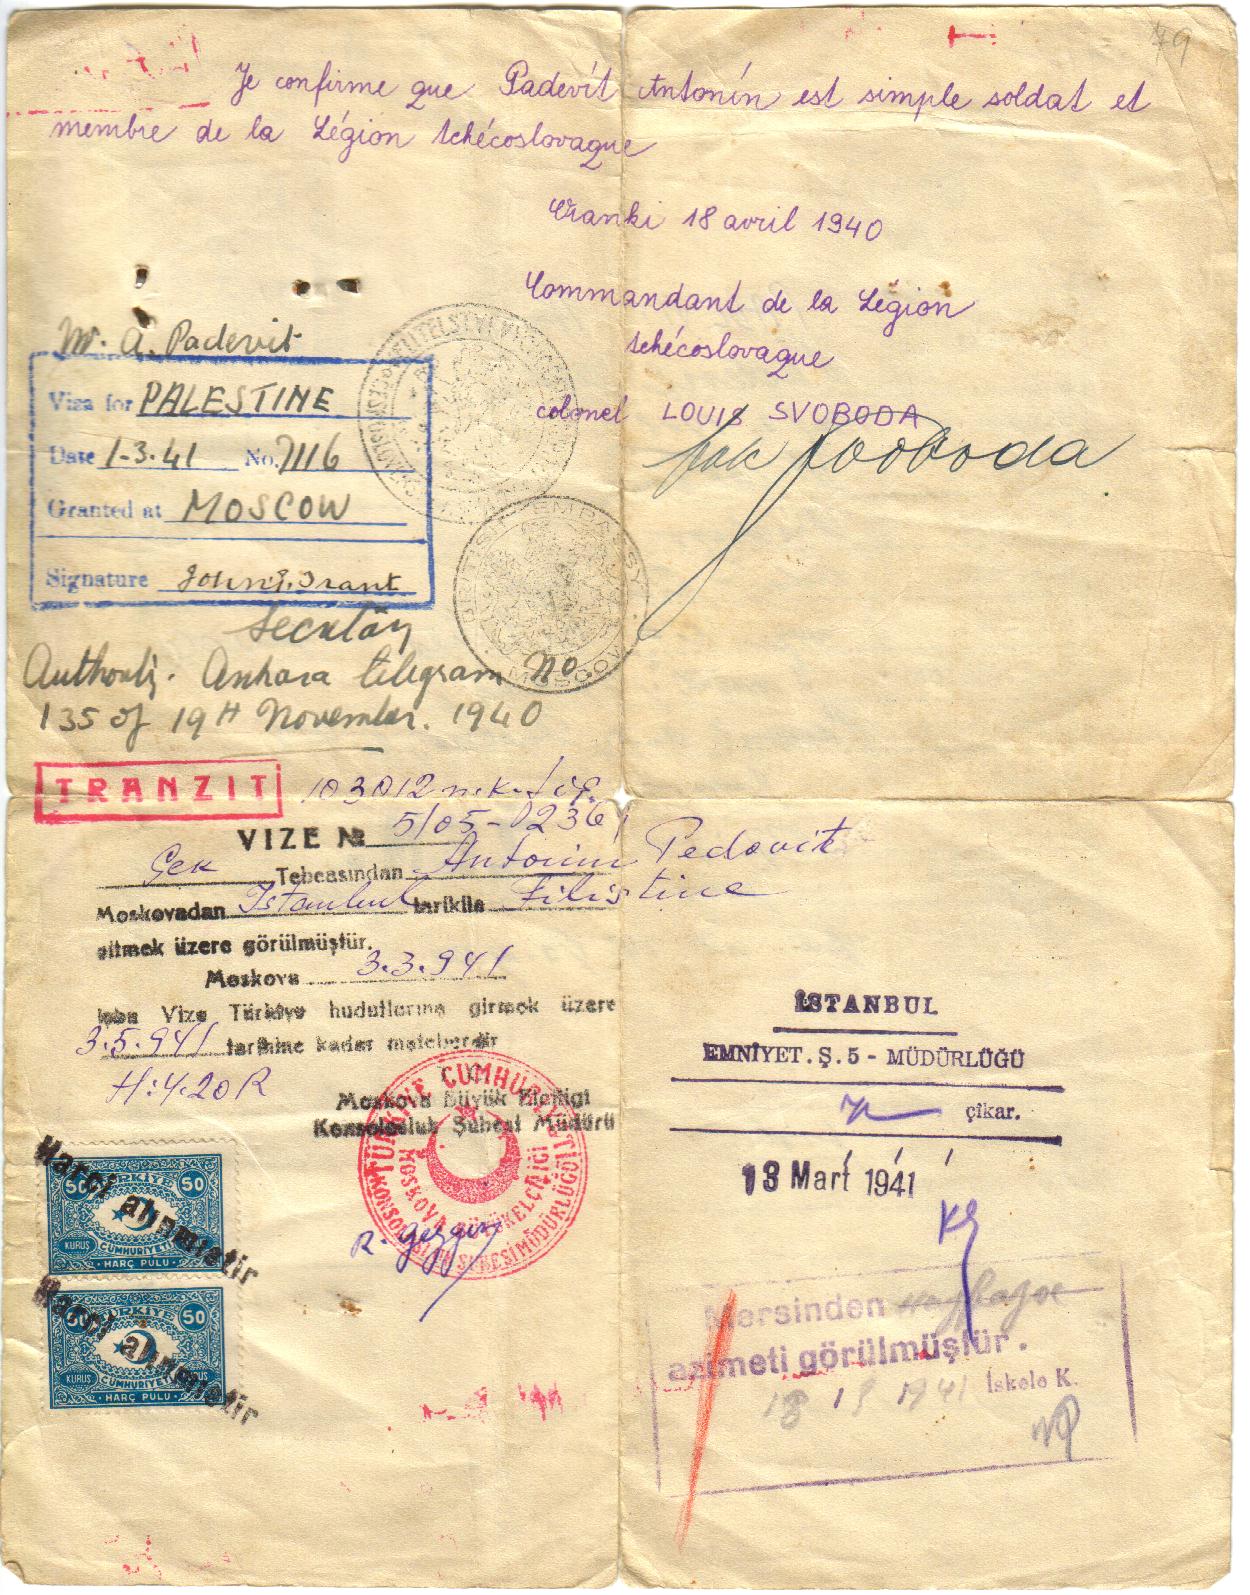 49
Je confirme que Padevít Antonín est simple soldat et
membre de la Légion tchécoslovaque
18 avril 1940
Commandant de la Légion
tchécoslovaque
colonel LOUIS SVOBODA
Svoboda
Mr. A. Padevit
Visa for PALESTINE
Date 1-3.41 No. 7116
Granted at MOSCOW
Signature
Ankara telegram No
135 of 19th November. 1940
BRITISH EMBASSY
MOSCOW
TRANZIT
VIZE №
Çek Tebeasından Antonin Pedovit
Moskovadan Istanbul tarikile Filistine
gitmek üzere görülmüştür.
Moskova 3.3.941
İşbu Vize Türkiye hudutlarına girmek üzere
3.5.941 tarihine kadar muteberdir
H:4.20R
T.C.
Moskova Büyük Elçiliği
Konsolosluk Şubesi Müdürü
TÜRKİYE CUMHURİYETİ
MOSKOVA BÜYÜKELÇİLİĞİ
KONSOLOSLUK ŞUBESİ MÜDÜRLÜĞÜ
İSTANBUL
EMNİYET. Ş. 5 - MÜDÜRLÜĞÜ
çıkar.
13 Mart 1941
50 TÜRKİYE 50
KURUŞ CUMHURİYETİ
HARÇ PULU
Harcı alınmıştır
50 TÜRKİYE 50
KURUŞ CUMHURİYETİ
HARÇ PULU
Harcı alınmıştır
Mersinden
azimeti görülmüştür.
1941 İskele K.